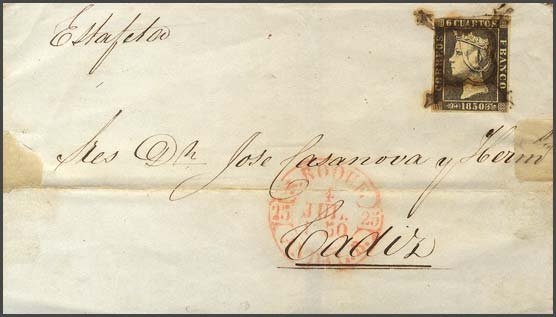 Estafeta
6 CUARTOS
CORREOS
FRANCO
1850
Sres Dn Jose Casanova y Herm
S. ROQUE.
4
25 JUL. 25
50
Cadiz